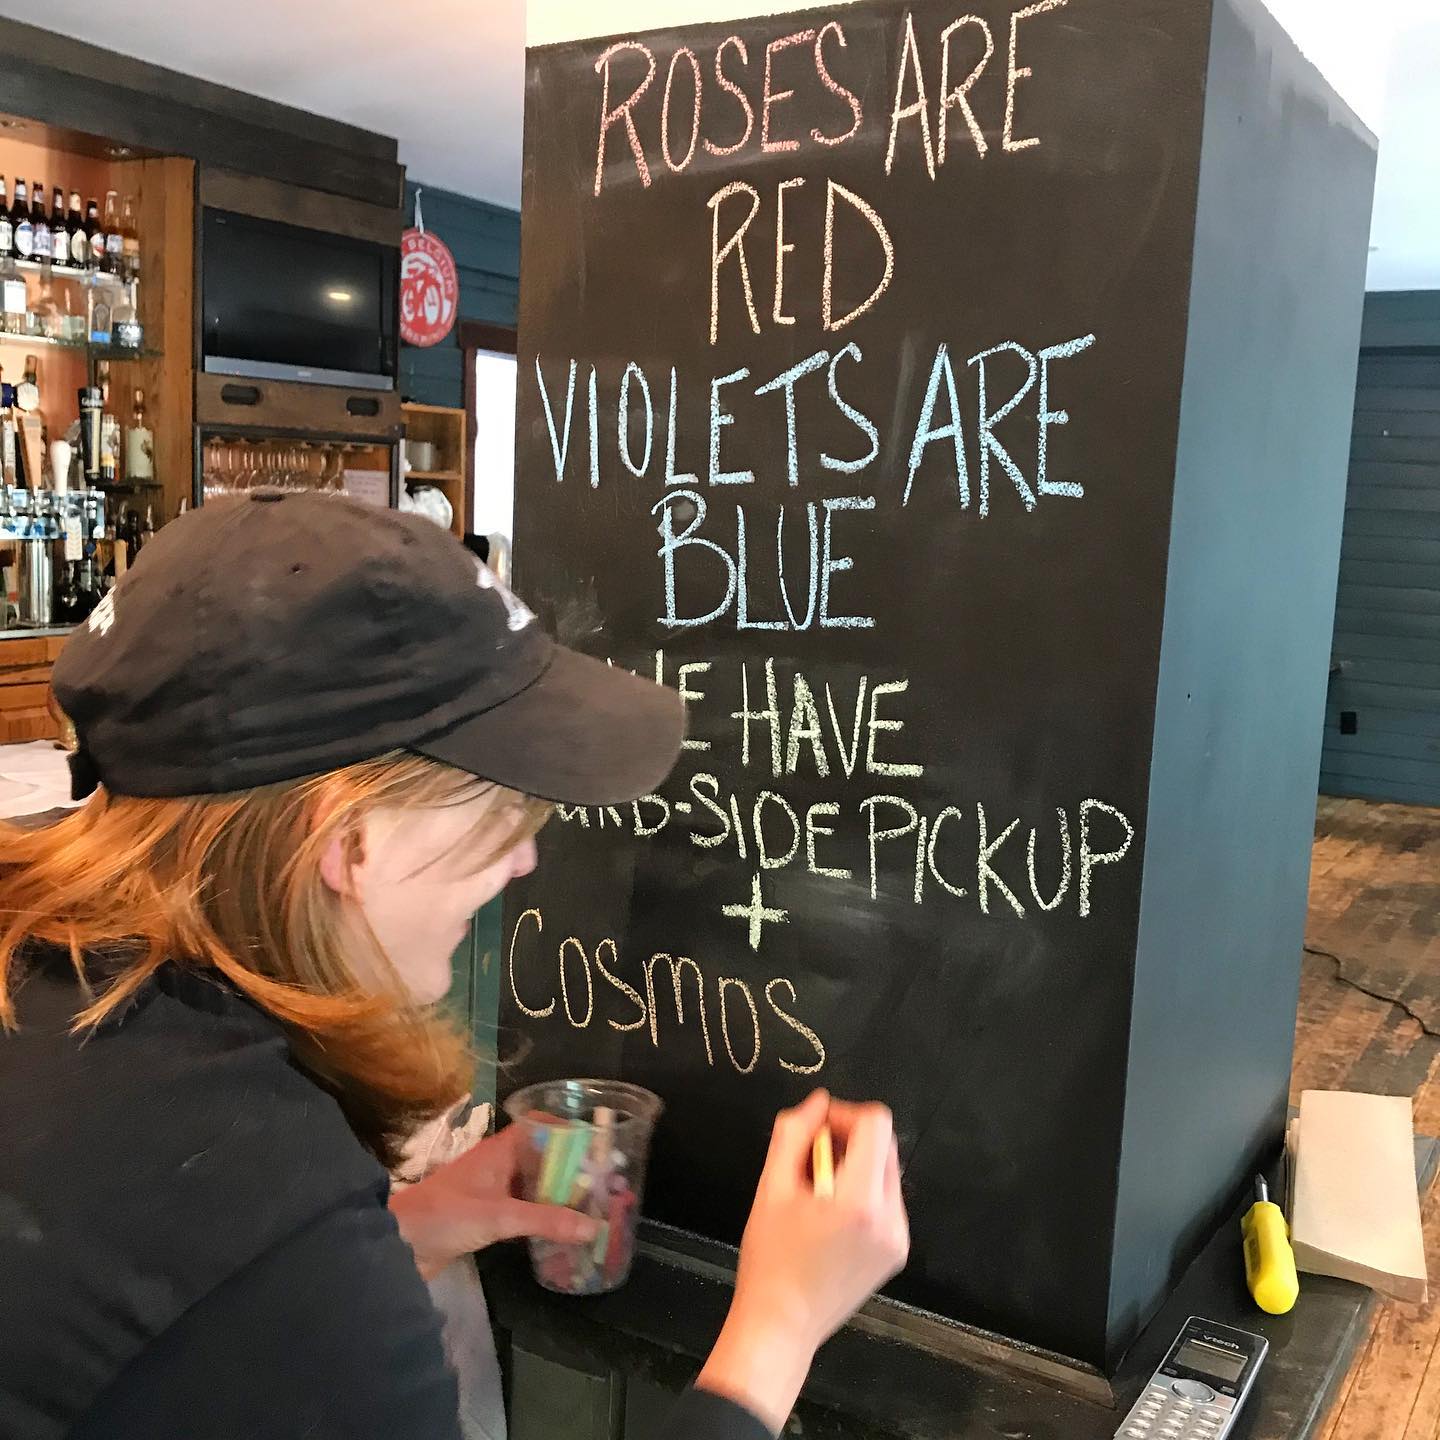 ROSES ARE
RED
VIOLETS ARE
BLUE
HAVE
CURB-SIDE PICKUP
+
COSMOS
BELGIUM
vtech